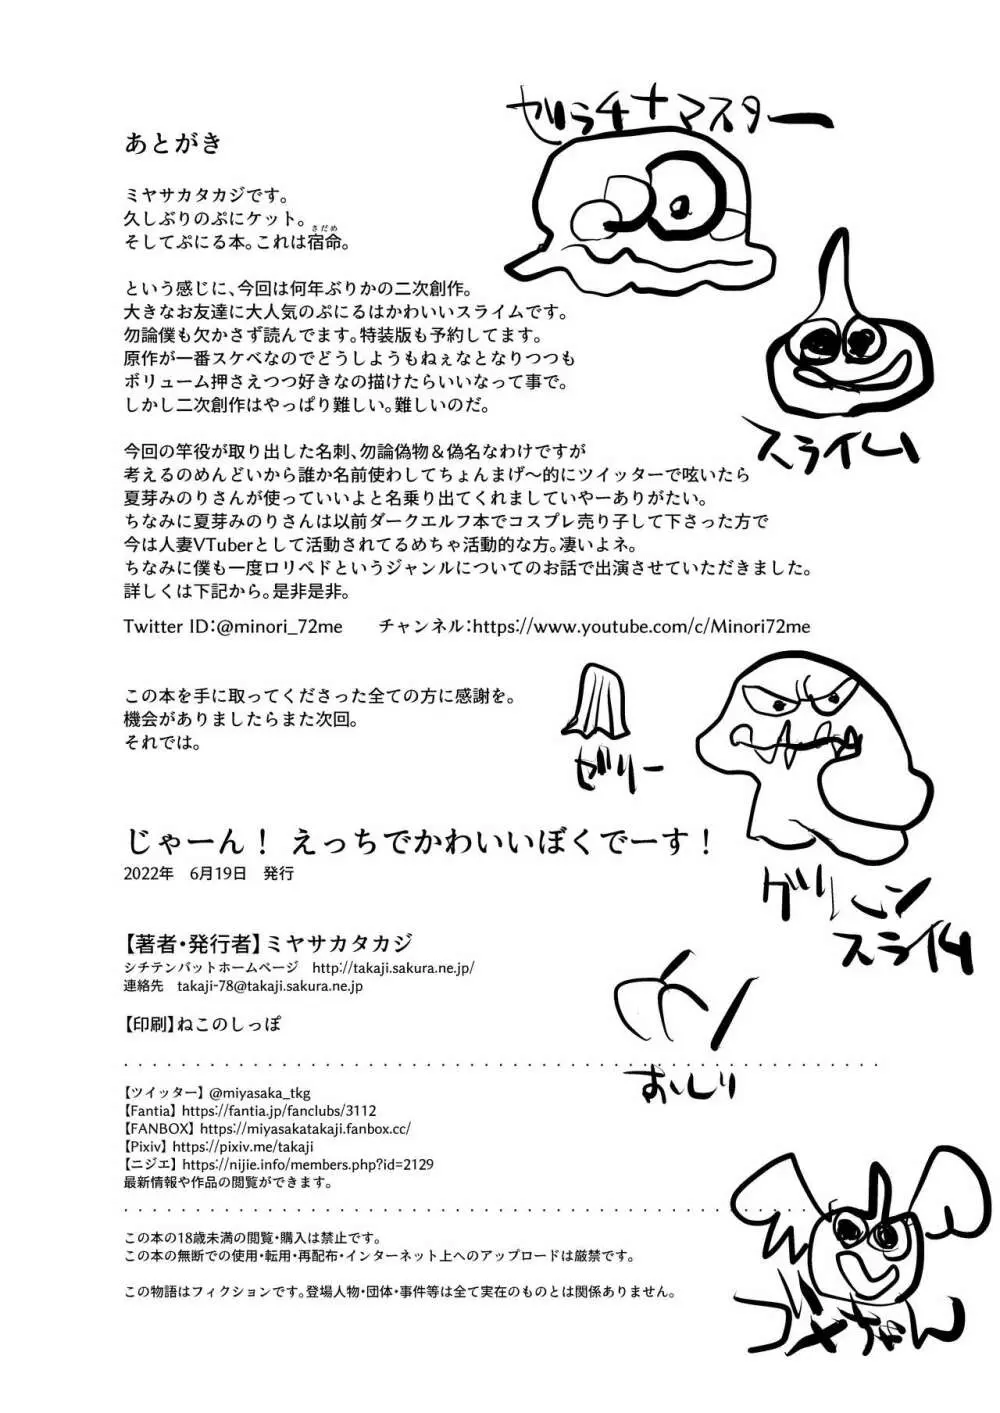 ゼラチナマスター
あとがき
ミヤサカタカジです。
久しぶりのぷにケット。
そしてぷにる本。これは宿命。
さだめ
という感じに、今回は何年ぶりかの二次創作。
大きなお友達に大人気のぷにるはかわいいスライムです。
勿論僕も欠かさず読んでます。特装版も予約してます。
原作が一番スケベなのでどうしようもねぇなとなりつつも
ボリューム押さえつつ好きなの描けたらいいなって事で。
しかし二次創作はやっぱり難しい。難しいのだ。
スライム
今回の竿役が取り出した名刺、勿論偽物＆偽名なわけですが
考えるのめんどいから誰か名前使わしてちょんまげ〜的にツイッターで呟いたら
夏芽みのりさんが使っていいよと名乗り出てくれましていやーありがたい。
ちなみに夏芽みのりさんは以前ダークエルフ本でコスプレ売り子して下さった方で
今は人妻VTuberとして活動されてるめちゃ活動的な方。凄いよネ。
ちなみに僕も一度ロリペドというジャンルについてのお話で出演させていただきました。
詳しくは下記から。是非是非。
Twitter ID：@minori_72me　　チャンネル：https://www.youtube.com/c/Minori72me
この本を手に取ってくださった全ての方に感謝を。
機会がありましたらまた次回。
それでは。
ゼリー
じゃーん！ えっちでかわいいぼくでーす！
2022年　6月19日　発行
グリーン
スライム
【著者・発行者】ミヤサカタカジ
シチテンバットホームページ　http://takaji.sakura.ne.jp/
連絡先　takaji-78@takaji.sakura.ne.jp
【印刷】ねこのしっぽ
おしり
【ツイッター】@miyasaka_tkg
【Fantia】https://fantia.jp/fanclubs/3112
【FANBOX】https://miyasakatakaji.fanbox.cc/
【Pixiv】https://pixiv.me/takaji
【ニジエ】https://nijie.info/members.php?id=2129
最新情報や作品の閲覧ができます。
この本の18歳未満の閲覧・購入は禁止です。
この本の無断での使用・転用・再配布・インターネット上へのアップロードは厳禁です。
この物語はフィクションです。登場人物・団体・事件等は全て実在のものとは関係ありません。
ゴメちゃん